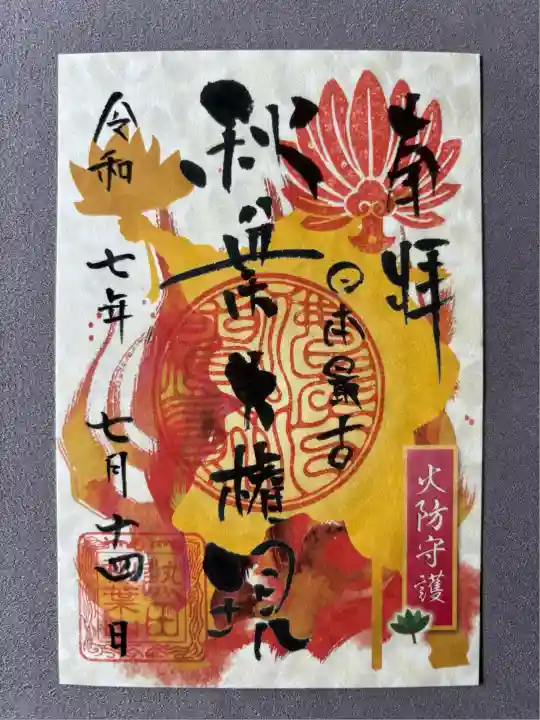 奉拝
日本最古
秋葉大権現
火防守護
令和
七年
七月十四日